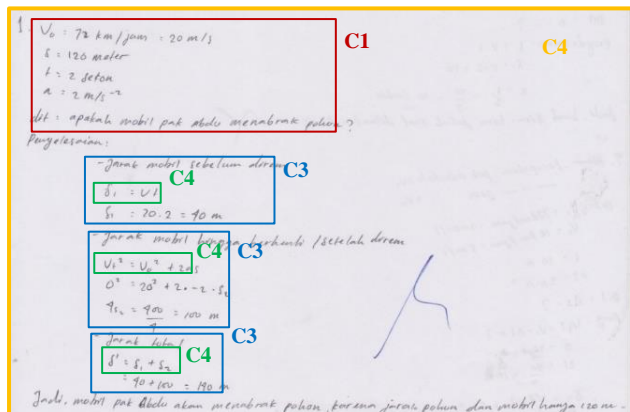 1. V₀ = 72 km/jam = 20 m/s C1 C4
s = 120 meter
t = 2 deton
a = 2 m/s⁻²
dit : apakah mobil pak abdu menabrak pohon ?
Penyelesaian :
- Jarak mobil sebelum direm C3
s₁ = v.t C4
s₁ = 20 . 2 = 40 m
- Jarak mobil hingga berhenti / setelah direm
Vt² = V₀² + 2as C4 C3
0² = 20² + 2 . -2 . s₂
4s₂ = 400/4 = 100 m
- Jarak total C3
s' = s₁ + s₂ C4
= 40 + 100 = 140 m
Jadi, mobil pak Abdu akan menabrak pohon, karena jarak pohon dan mobil hanya 120 m.